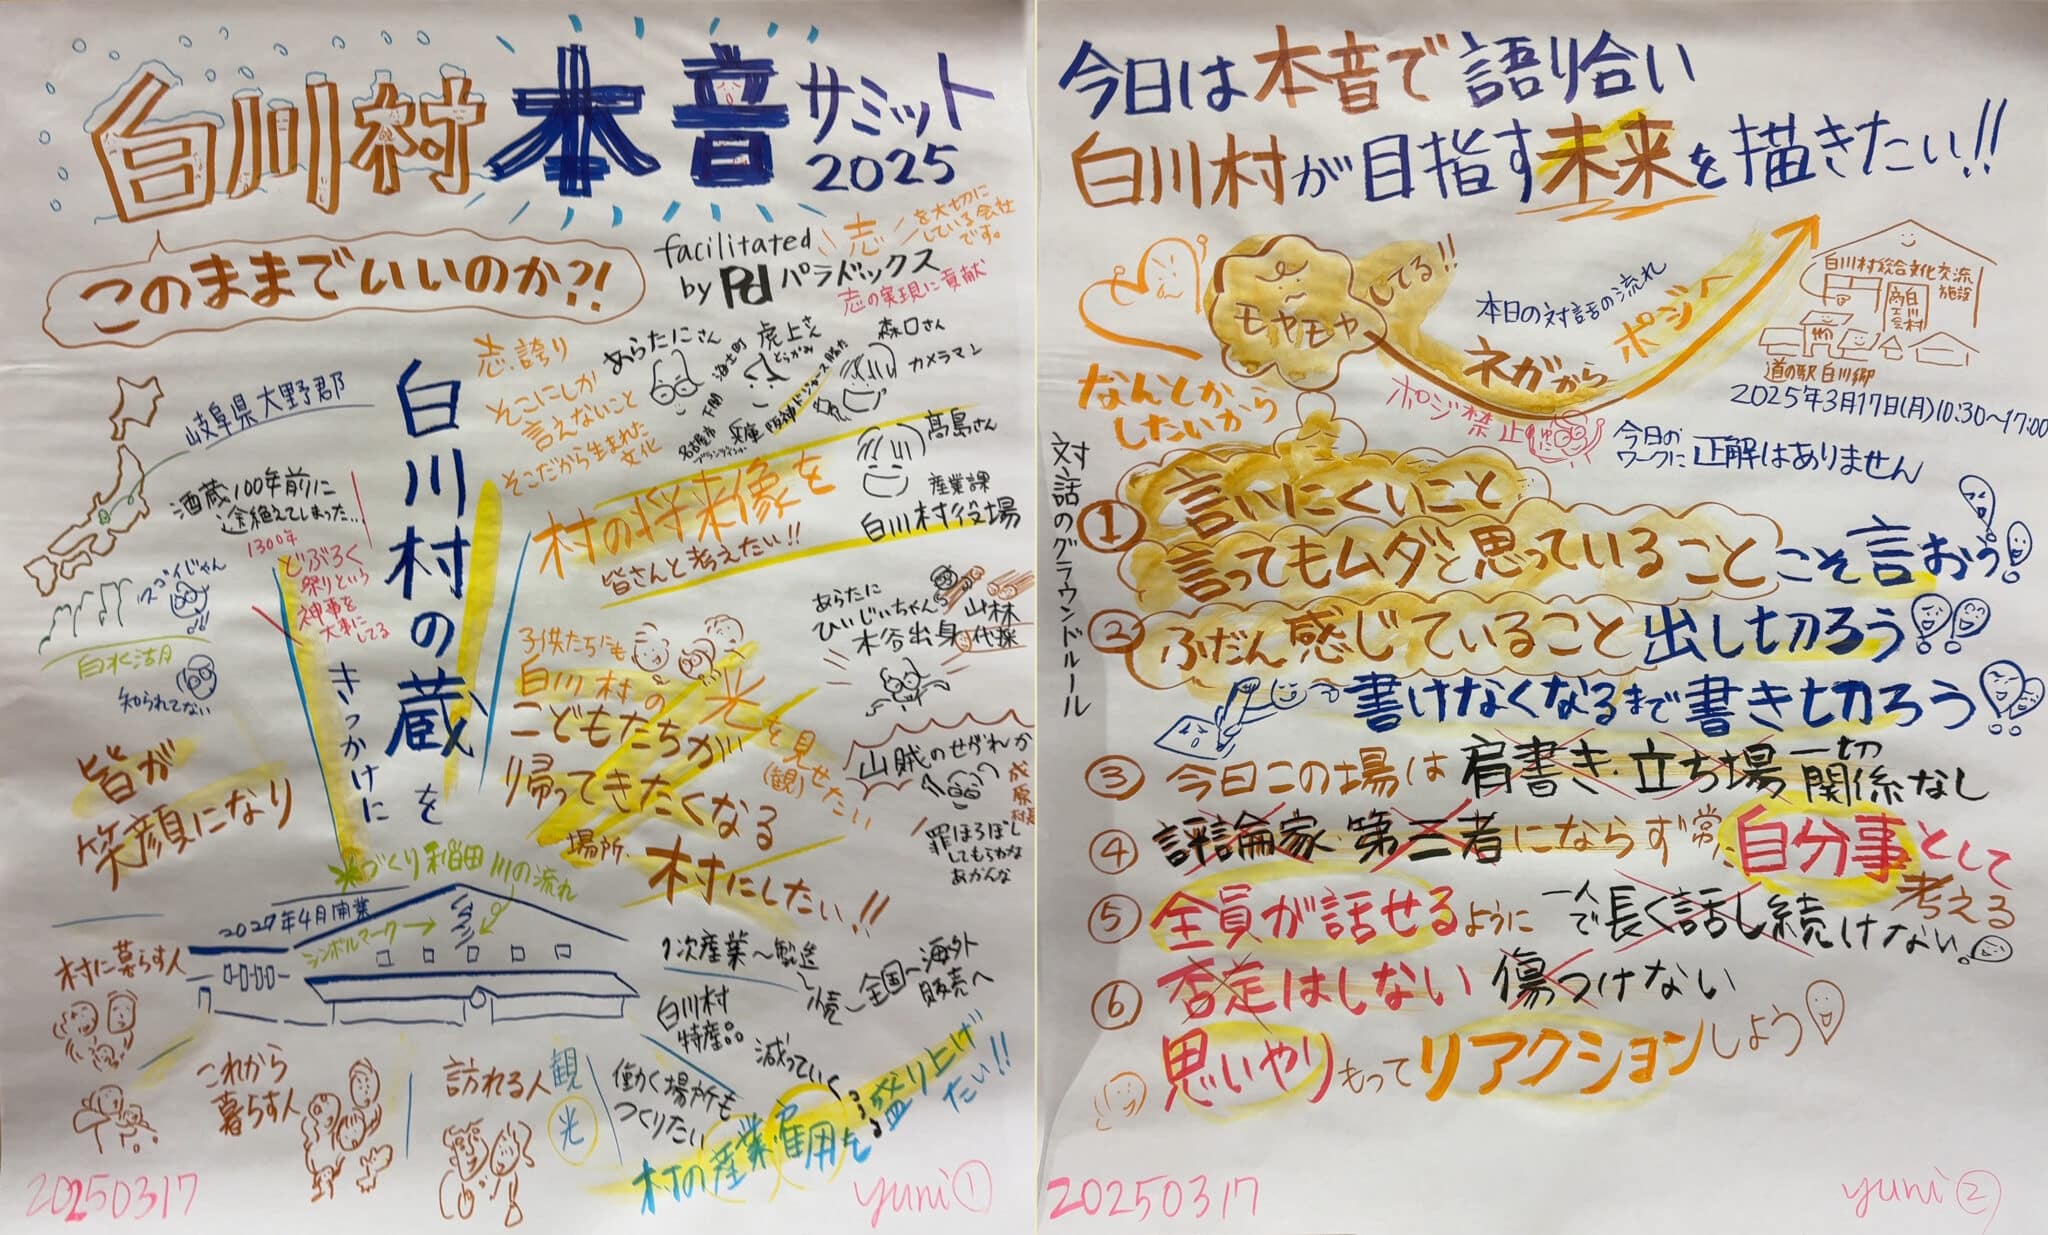 白川村本音サミット
2025
このままでいいのか?!
facilitated
by Pd パラドックス
志を大切に
している会社
です。
志の実現に貢献
岐阜県大野郡
酒蔵100年前に
途絶えてしまった…
1300年
どぶろく
祭りという
神事を
大事に
してる
スゴイじゃん
白水湖
知られてない
白川村の蔵を
きっかけに
志、誇り
そこにしか
言えないこと
そこだから生まれた
文化
あらたにさん
海士町
下関
名古屋市
虎上さん
とらかみ
兵庫
森口さん
カメラマン
高島さん
産業課
白川村役場
村の将来像を
皆さんと考えたい!!
あらたに
ひいじいちゃん
木谷出身
山林
伐採
山賊のせがれか
成原
村長
罪ほろぼし
してもらわな
あかんな
子供たちにも
白川村の光を見せたい
(観)
こどもたちが
帰ってきたくなる
場所、
村にしたい!!
皆が
笑顔になり
米づくり 稲田 川の流れ
2027年4月開業
シンボルマーク→
村に暮らす人
これから
暮らす人
訪れる人
観
光
1次産業〜製造
〜全国〜海外
販売へ
白川村
特産品
減っていく
働く場所も
つくりたい
村の産業、雇用を盛り上げ
たい!!
20250317
yuni①
今日は本音で語り合い
白川村が目指す未来を描きたい!!
モヤモヤしてる!!
なんとか
したいから
本日の対話の流れ
ネガからポジへ
ポジ禁止
白川村総合文化交流
施設
白川村
商工会
道の駅 白川郷
2025年3月17日(月)10:30〜17:00
今日の
ワークに正解はありません
対話のグラウンドルール
①言いにくいこと
言ってもムダと思っていることこそ言おう!
②ふだん感じていること出し切ろう!!
書けなくなるまで書き切ろう!!
③今日この場は肩書き・立ち場一切
関係なし
④評論家・第三者にならず常に自分事として
考える
⑤全員が話せるように一人で長く話し続けない。
⑥否定はしない 傷つけない
思いやりもってリアクションしよう!
20250317
yuni②